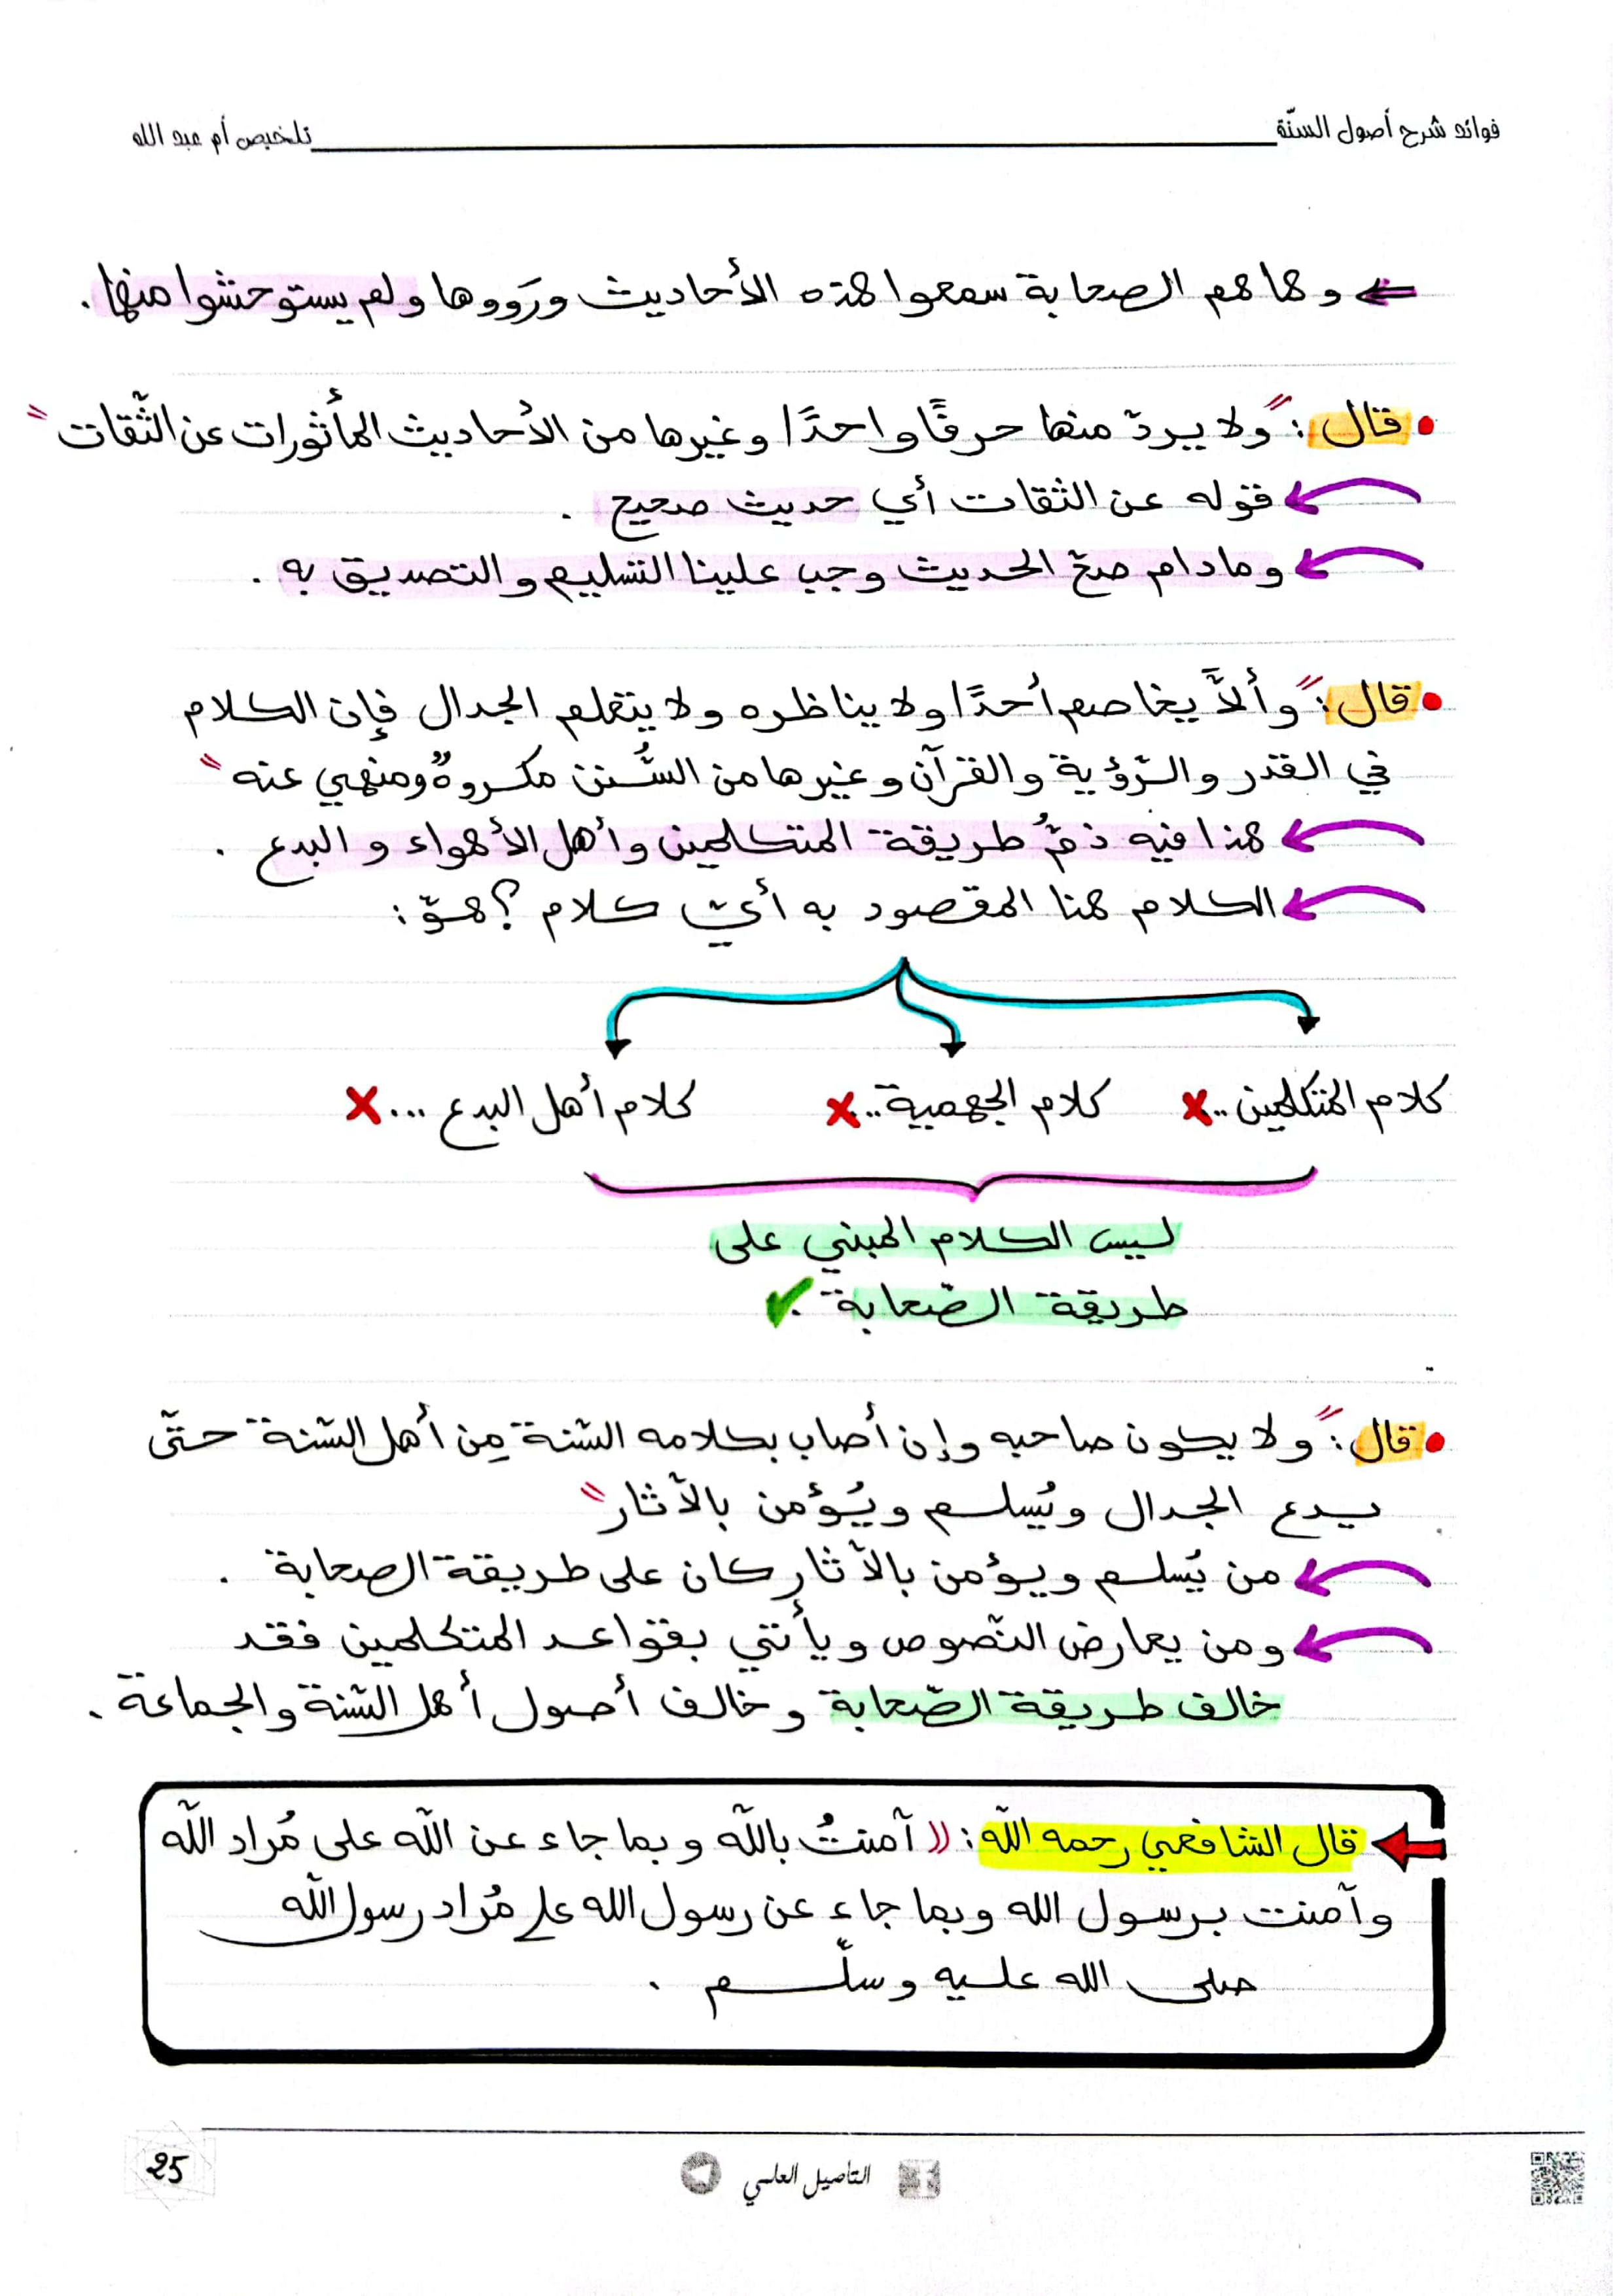 فوائد شرح أصول السنّة
تلخيص أم عبد الله
وهاهم الصحابة سمعوا هذه الأحاديث ورَووها ولم يستوحشوا منها.
• قال: "ولا يردّ منها حرفًا واحدًا وغيرها من الأحاديث المأثورات عن الثّقات"
فقوله عن الثقات أي حديث صحيح.
ومادام صحّ الحديث وجب علينا التسليم والتصديق به.
• قال: "وألاَّ يخاصم أحدًا ولا يناظره ولا يتعلم الجدال فإن الكلام
في القدر والرّؤية والقرآن وغيرها من السُّنن مكروهٌ ومنهي عنه"
هذا فيه ذمُّ طريقة المتكلمين وأهل الأهواء والبدع.
الكلام هنا المقصود به أيّ كلام؟ هوّ:
كلام المتكلمين..✗ كلام الجهمية..✗ كلام أهل البدع...✗
ليس الكلام المبني على
طريقة الصّحابة. ✓
• قال: "ولا يكون صاحبه وإن أصاب بكلامه السّنة مِن أهل السّنة حتّى
يدع الجدال ويُسلم ويُؤمن بالآثار"
من يُسلم ويؤمن بالآثار كان على طريقة الصحابة.
ومن يعارض النّصوص ويأتي بقواعد المتكلمين فقد
خالف طريقة الصّحابة وخالف أصول أهل السّنة والجماعة.
قال الشافعي رحمه الله: (( آمنتُ بالله وبما جاء عن الله على مُراد الله
وآمنت برسول الله وبما جاء عن رسول الله على مُراد رسول الله
صلى الله عليه وسلّم.
التأصيل العلمي
25